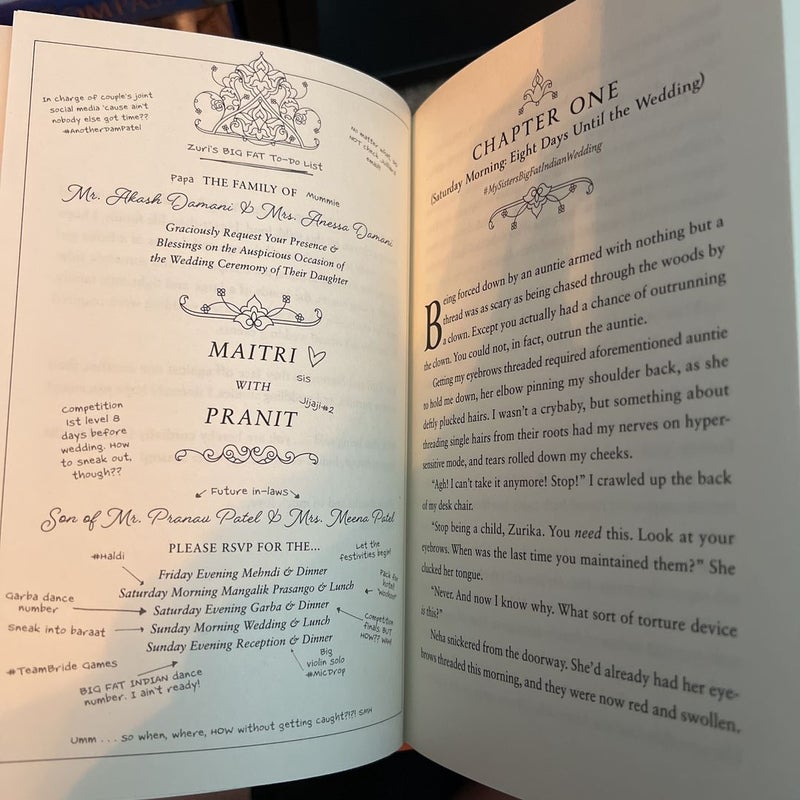 In charge of couple's joint
social media 'cause ain't
nobody else got time??
#AnotherDamPatel
No matter what, do
NOT check Julliard
email!
Zuri's BIG FAT To-Do List
Papa THE FAMILY OF Mummie
Mr. Akash Damani & Mrs. Anessa Damani
Graciously Request Your Presence &
Blessings on the Auspicious Occasion of
the Wedding Ceremony of Their Daughter
MAITRI
sis
WITH
Jijaji#2
PRANIT
Competition
1st level 8
days before
wedding. How
to sneak out,
though??
Future in-laws
Son of Mr. Pranav Patel & Mrs. Meena Patel
PLEASE RSVP FOR THE...
#Haldi
Let the
festivities begin!
Friday Evening Mehndi & Dinner
Saturday Morning Mangalik Prasango & Lunch
Pack for
hotel
"workout"
Garba dance
number
Saturday Evening Garba & Dinner
Sneak into baraat
Sunday Morning Wedding & Lunch
Competition
finals BUT
HOW?? WAH!
Sunday Evening Reception & Dinner
#TeamBride Games
BIG FAT INDIAN dance
number. I ain't ready!
Big
violin solo
#MicDrop
Umm . . . so when, where, HOW without getting caught?!?! SMH
CHAPTER ONE
(Saturday Morning: Eight Days Until the Wedding)
#MySistersBigFatIndianWedding
Being forced down by an auntie armed with nothing but a
thread was as scary as being chased through the woods by
a clown. Except you actually had a chance of outrunning
the clown. You could not, in fact, outrun the auntie.
Getting my eyebrows threaded required aforementioned auntie
to hold me down, her elbow pinning my shoulder back, as she
deftly plucked hairs. I wasn't a crybaby, but something about
threading single hairs from their roots had my nerves on hyper-
sensitive mode, and tears rolled down my cheeks.
"Agh! I can't take it anymore! Stop!" I crawled up the back
of my desk chair.
"Stop being a child, Zurika. You need this. Look at your
eyebrows. When was the last time you maintained them?" She
clucked her tongue.
"Never. And now I know why. What sort of torture device
is this?"
Neha snickered from the doorway. She'd already had her eye-
brows threaded this morning, and they were now red and swollen,